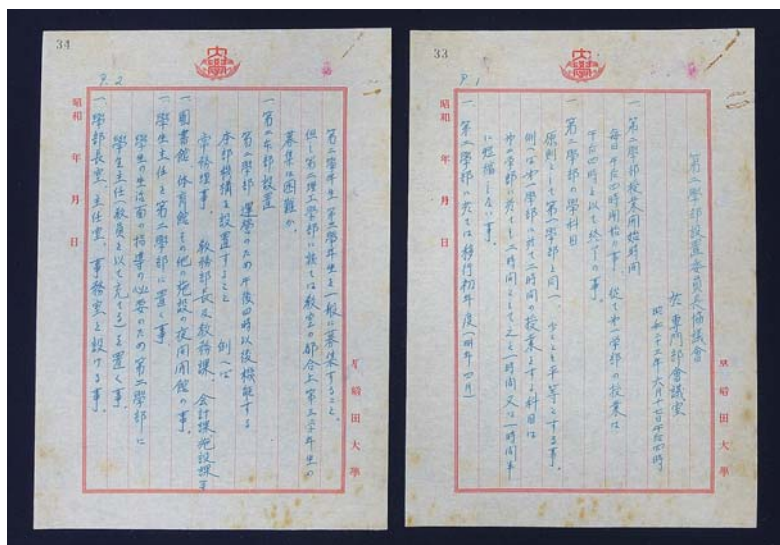 33
P.1
大學
第二學部設置委員長協議會
於 專門部會議室
昭和二十三年六月十七日午后四時
一 第二學部授業開始時間
毎日午后四時開始の事、從て第一學部の授業は
午后四時を以て終了の事。
一 第二學部の學科目
原則として第一學部と同一、少くとも平等とする事。
例へば第一學部に於て二時間の授業をする科目は
第二學部に於ても二時間として之を一時間又は一時間半
に短縮しない事。
一 第二學部に於ては移行初年度(明年四月)
昭和 年 月 日
早稻田大學
34
P.2
大學
第二學年生、第三學年生を一般に募集すること。
但し第二理工學部に於ては教室の都合上第三學年生の
募集は困難か。
一 第二本部設置
第二學部運營のため午後四時以後機能する
本部機構を設置すること 例へば
常務理事、教務部長及教務課、會計課、施設課等
一 圖書館、体育館その他の施設の夜間開館の事。
一 學生主任を第二學部に置く事
學生の生活面の指導の必要のため第二學部に
學生主任(教員を以て充てる)を置く事。
一 學部長室、主任室、事務室を設ける事。
昭和 年 月 日
早稻田大學